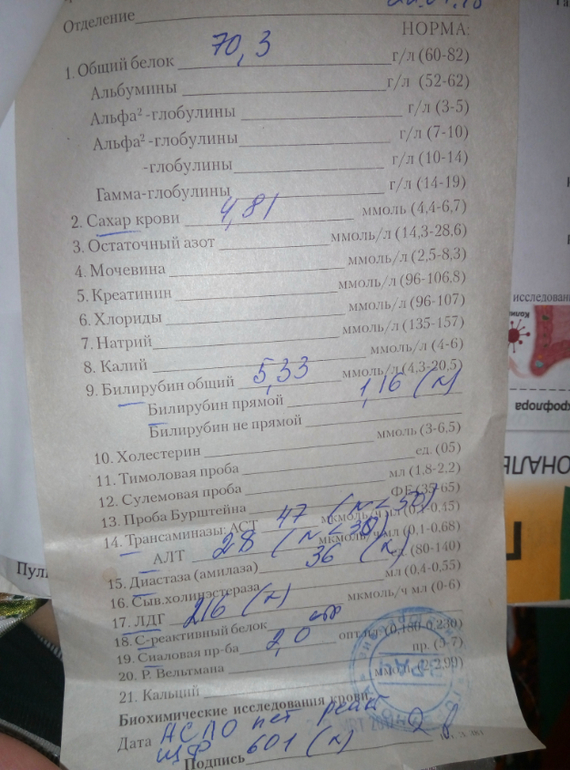 Отделение
НОРМА:
1. Общий белок 70,3 г/л (60-82)
Альбумины г/л (52-62)
Альфа² -глобулины г/л (3-5)
Альфа² -глобулины г/л (7-10)
-глобулины г/л (10-14)
Гамма-глобулины г/л (14-19)
2. Сахар крови 4,81 ммоль (4,4-6,7)
3. Остаточный азот ммоль/л (14,3-28,6)
4. Мочевина ммоль/л (2,5-8,3)
5. Креатинин ммоль/л (96-106,8)
6. Хлориды ммоль/л (96-107)
7. Натрий ммоль/л (135-157)
8. Калий ммоль/л (4-6)
9. Билирубин общий 5,33 ммоль/л (4,3-20,5)
Билирубин прямой 1,16 (N)
Билирубин не прямой
10. Холестерин ммоль (3-6,5)
11. Тимоловая проба ед. (05)
12. Сулемовая проба мл (1,8-2,2)
13. Проба Бурштейна ФЕ (35-65)
14. Трансаминазы: АСТ 47 (N<30) мкмоль/ч мл (0,1-0,45)
АЛТ 28 (N<30) мкмоль/ч мл (0,1-0,68)
15. Диастаза (амилаза) 36 (N) ед. (80-140)
16. Сыв.холинэстераза мл (0,4-0,55)
17. ЛДГ 216 (N) мкмоль/ч мл (0-6)
18. С-реактивный белок отр
19. Сиаловая пр-ба 2,0 опт.пл (0,180-0,230)
20. Р. Вельтмана пр. (5-7)
21. Кальций
Биохимические исследования крови
Дата АСЛО нет реакт
ЩФ 601 (N)
Подпись
исследован